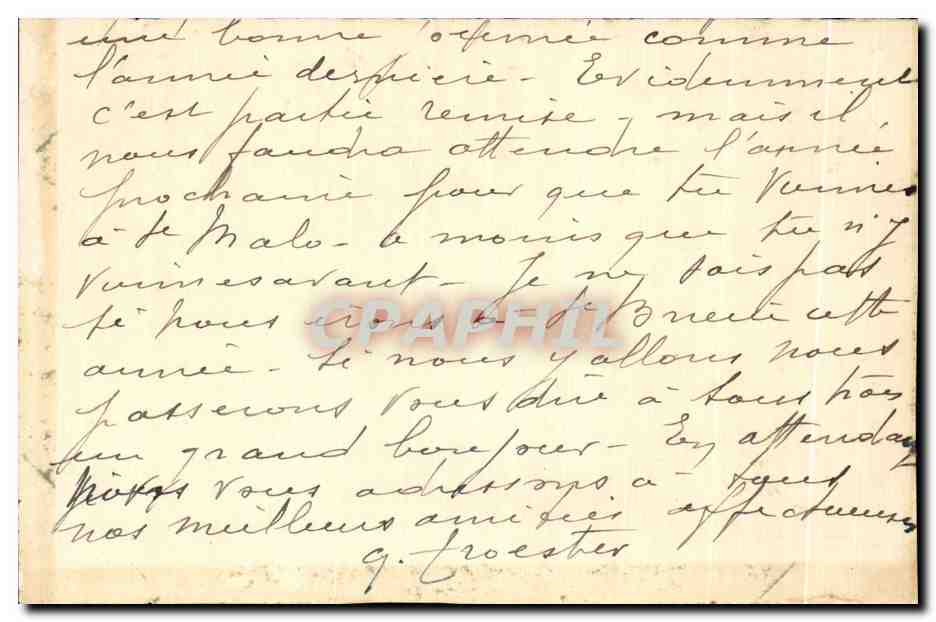 une bonne comme
l'année dernière - Evidemment
c'est partie remise - mais il
nous faudra attendre l'année
prochaine pour que tu viennes
à St Malo - a moins que tu n'y
viennes avant - Je ne sais pas
si nous irons à St Brieuc cette
année - Si nous y allons nous
passerons vous dire à tous trois
un grand bonjour - En attendant
nous vous adressons à tous
nos meilleures amitiés affectueuses
G. Troester
CPAPHIL